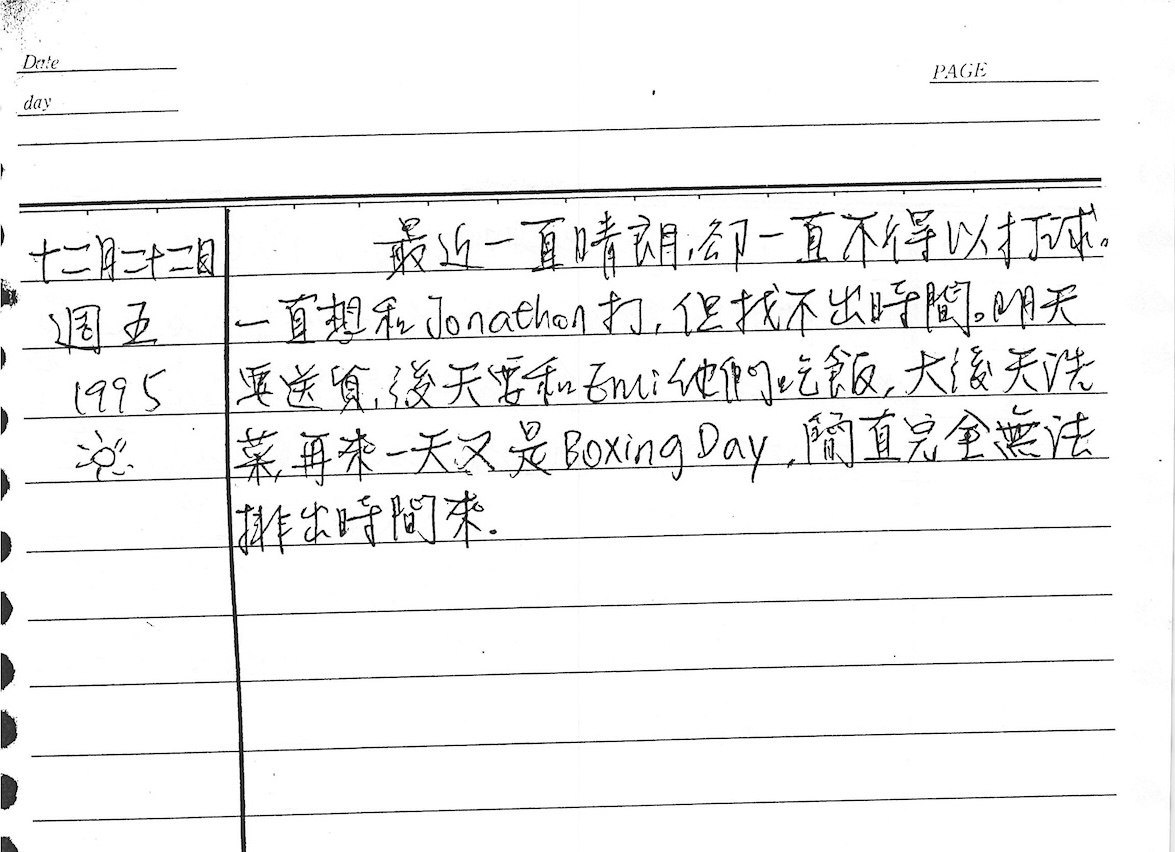 Date
PAGE
day
十二月二十二日
週五
1995
最近一直晴朗,卻一直不得以打球。
一直想和Jonathon打,但找不出時間。明天
要送貨,後天要和Emi他們吃飯,大後天洗
菜,再來一天又是Boxing Day,簡直完全無法
排出時間來.